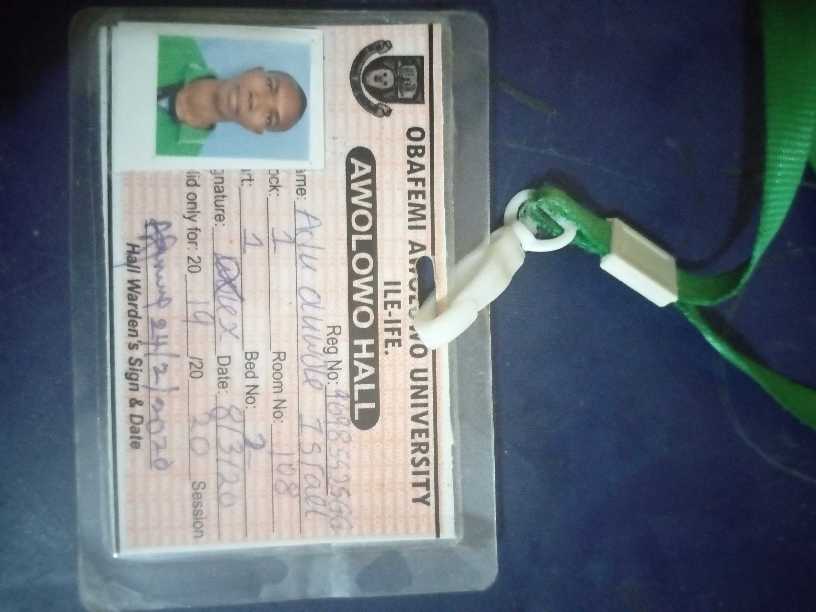 OBAFEMI AWOLOWO UNIVERSITY
ILE-IFE.
AWOLOWO HALL
Reg No:
ame: Israel
ock: 1 Room No: 108
rt: 1 Bed No: 2
gnature: Date: 8/3/20
lid only for: 20 19 /20 20 Session
24/2/2020
Hall Warden's Sign & Date